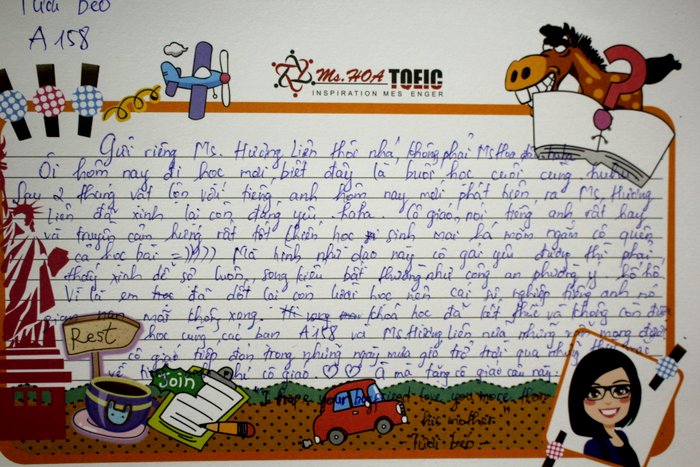 Tười béo
A 158
Ms.HOA TOEIC
INSPIRATION MES ENGER
Gửi riêng Ms. Hương Liên thôi nhá, không phải Ms Hoa
Ôi hôm nay đi học mới biết đây là buổi học cuối cùng
Sau 2 tháng vật lộn với tiếng anh hôm nay mới phát hiện ra Ms. Hương
Liên đã xinh lại còn đáng yêu. haha. Cô giáo nói tiếng anh rất hay
và truyền cảm hứng rất tốt khiến học sinh mai há mồm ngắm cô quên
cả học bài =)))) Mà hình như dạo này cô gái yêu đương thì phải
thấy xinh dễ sợ luôn, song kiểu bất thường như công an phường ý. hố hố
Vì là em đã dốt lại còn lười học nên cái sự nghiệp tiếng anh nó
gian nan mãi không xong. khoá học đã kết thúc và không còn
học cùng các bạn A158 và Ms Hương Liên nữa nhưng vẫn mong được
cô giáo tiếp đón trong những ngày mưa gió trở trời qua
về cô giáo ♡♡ À mà tặng cô giáo câu này:
"I hope your love you more than
his mother"
- Tười béo -
Rest
Join
?